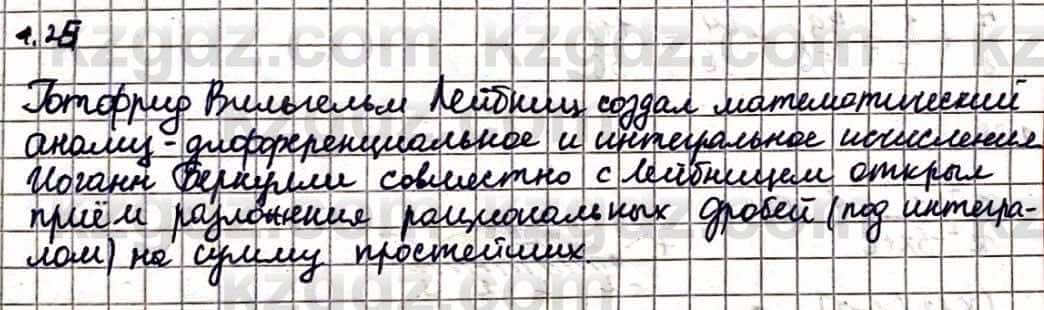 1.25
Готфрид Вильгельм Лейбниц создал математический
анализ - дифференциальное и интегральное исчисления
Иоганн Беркулли совместно с Лейбницем открыл
приём разложения рациональных дробей (под интегра-
лом) на сумму простейших.